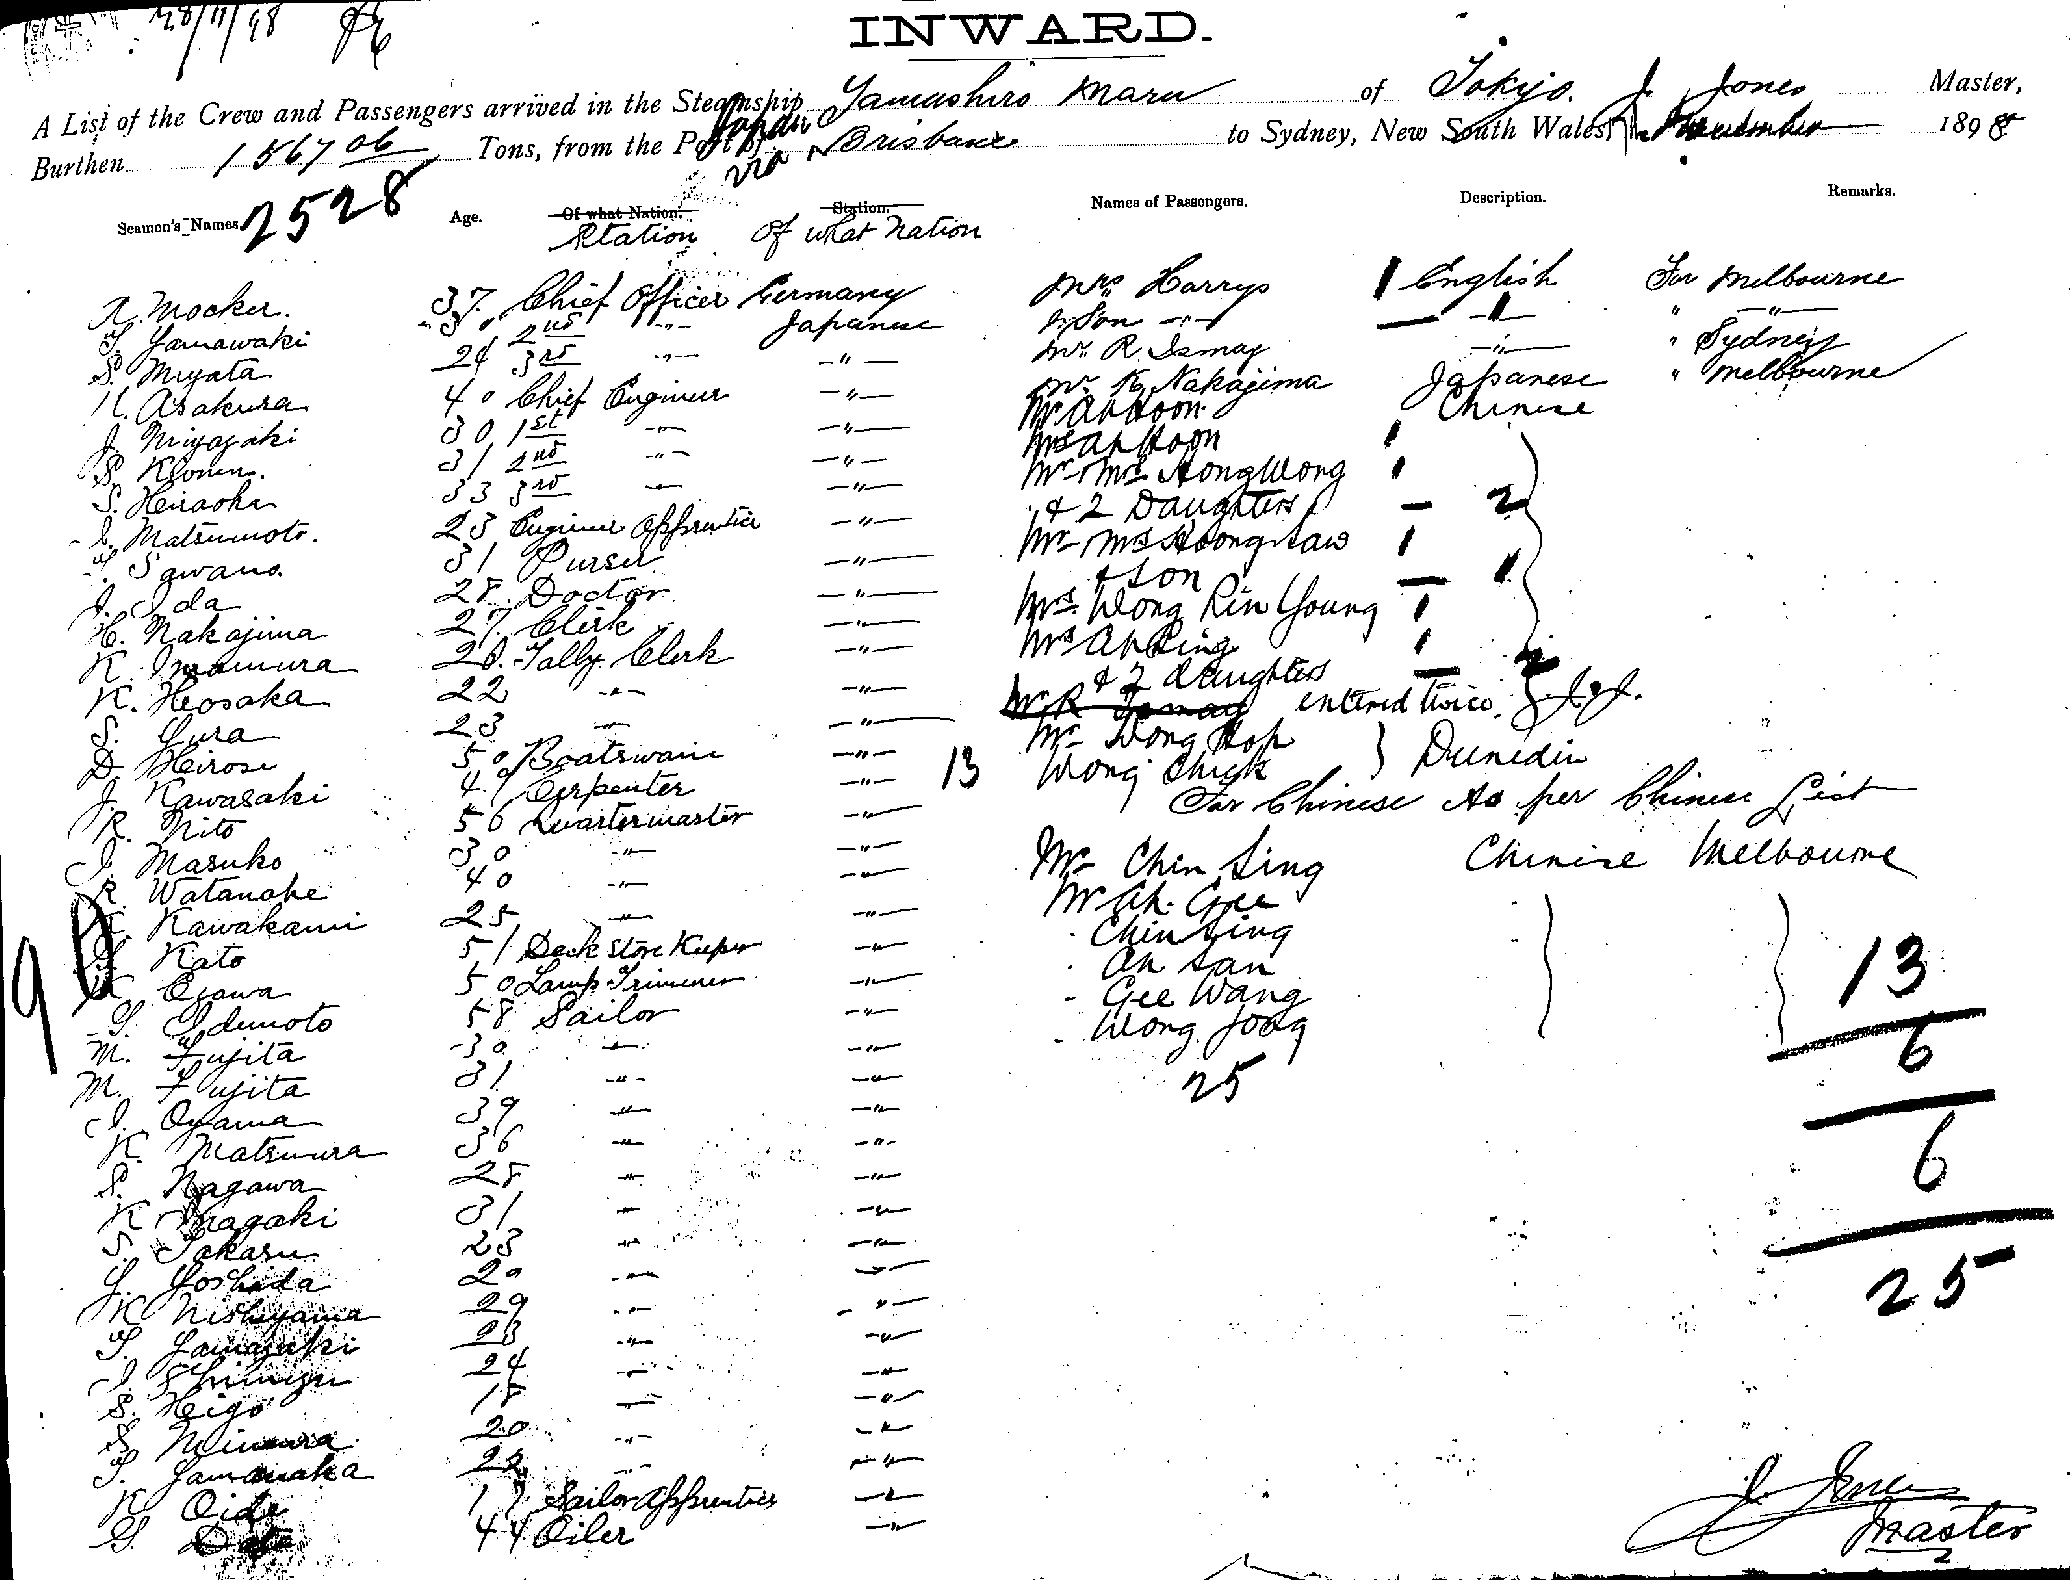 28/11/98
INWARD.
A List of the Crew and Passengers arrived in the Steamship Yamashiro Maru of Tokyo. J. Jones Master,
Burthen 1567 06 Tons, from the Port of Japan via Brisbane to Sydney, New South Wales, November 1898
2528
Seamen's Names. Age. Of what Nation. Station. Names of Passengers. Description. Remarks.
Station Of what Nation
A. Mocker. 37. Chief Officer Germany Mrs Harrys 1 English For Melbourne
Yamawaki 30 2nd -"- Japanese & Son -"- 1 " -"-
S. Miyata 24 3rd -"- -"- Mr. R. Ismay -"- " Sydney
K. Asakura 40 Chief Engineer -"- Mr. K. Nakajima Japanese " Melbourne
J. Miyazaki 30 1st -"- -"- Mr Ah Hoon Chinese
S. 31 2nd -"- -"- Mrs Ah Hoon 1
S. Hiraoka 33 3rd -"- -"- Mr Mrs Hong Wong 1
Matsumoto. 23 Engineer Apprentice -"- & 2 Daughters - 2
Sawano 31 Purser -"- Mr Mrs 1
J. Ida 28. Doctor -"- & Son - 1
H. Nakajima 27. Clerk -"- Mrs. Wong Kin Young 1
K. Imamura 20. Tally Clerk -"- Mrs Ah Ping 1
K. Heosaka 22 -"- -"- & 2 Daughters - 2
S. Yura 23 -"- -"- Mr R Ismay entered twice. J.J.
D. Hirose 50 Boatswain -"- Mr Wong Hop } Dunedin
J. Kawasaki 49 Carpenter -"- 13 Wong Chick
K. Nito 56 Quartermaster -"- For Chinese As per Chinese List
J. Masuko 30 -"- -"- Mr Chin Sing Chinese Melbourne
K. Watanabe 40 -"- -"- Mr Ah. Gee
Kawakami 25 -"- -"- Chin Sing
90 Kato 51 Deck Store Keeper -"- Ah San 13
K. Ogawa 50 Lamp Trimmer -"- Gee Wang
Idemoto 58 Sailor -"- Wong Jong
M. Fujita 30 -"- -"- 6
M. Fujita 31 -"- -"- 25
J. Oyama 39 -"- -"-
K. Matsumura 36 -"- -"- 6
S. Nagawa 28 -"- -"-
K. Inagaki 31 -"- -"-
S. Takasu 23 -"- -"-
Y. Yoshida 20 -"- -"- 25
K. Nishiyama 29 -"- -"-
Yamazaki 23 -"- -"-
J. Shimizu 24 -"- -"-
S. Heigo 18 -"- -"-
S. Mimura 20 -"- -"-
Yamanaka 22 -"- -"-
K. Oide 17 Sailor Apprentice -"- J. Jones
G. Date 44 Oiler -"- Master